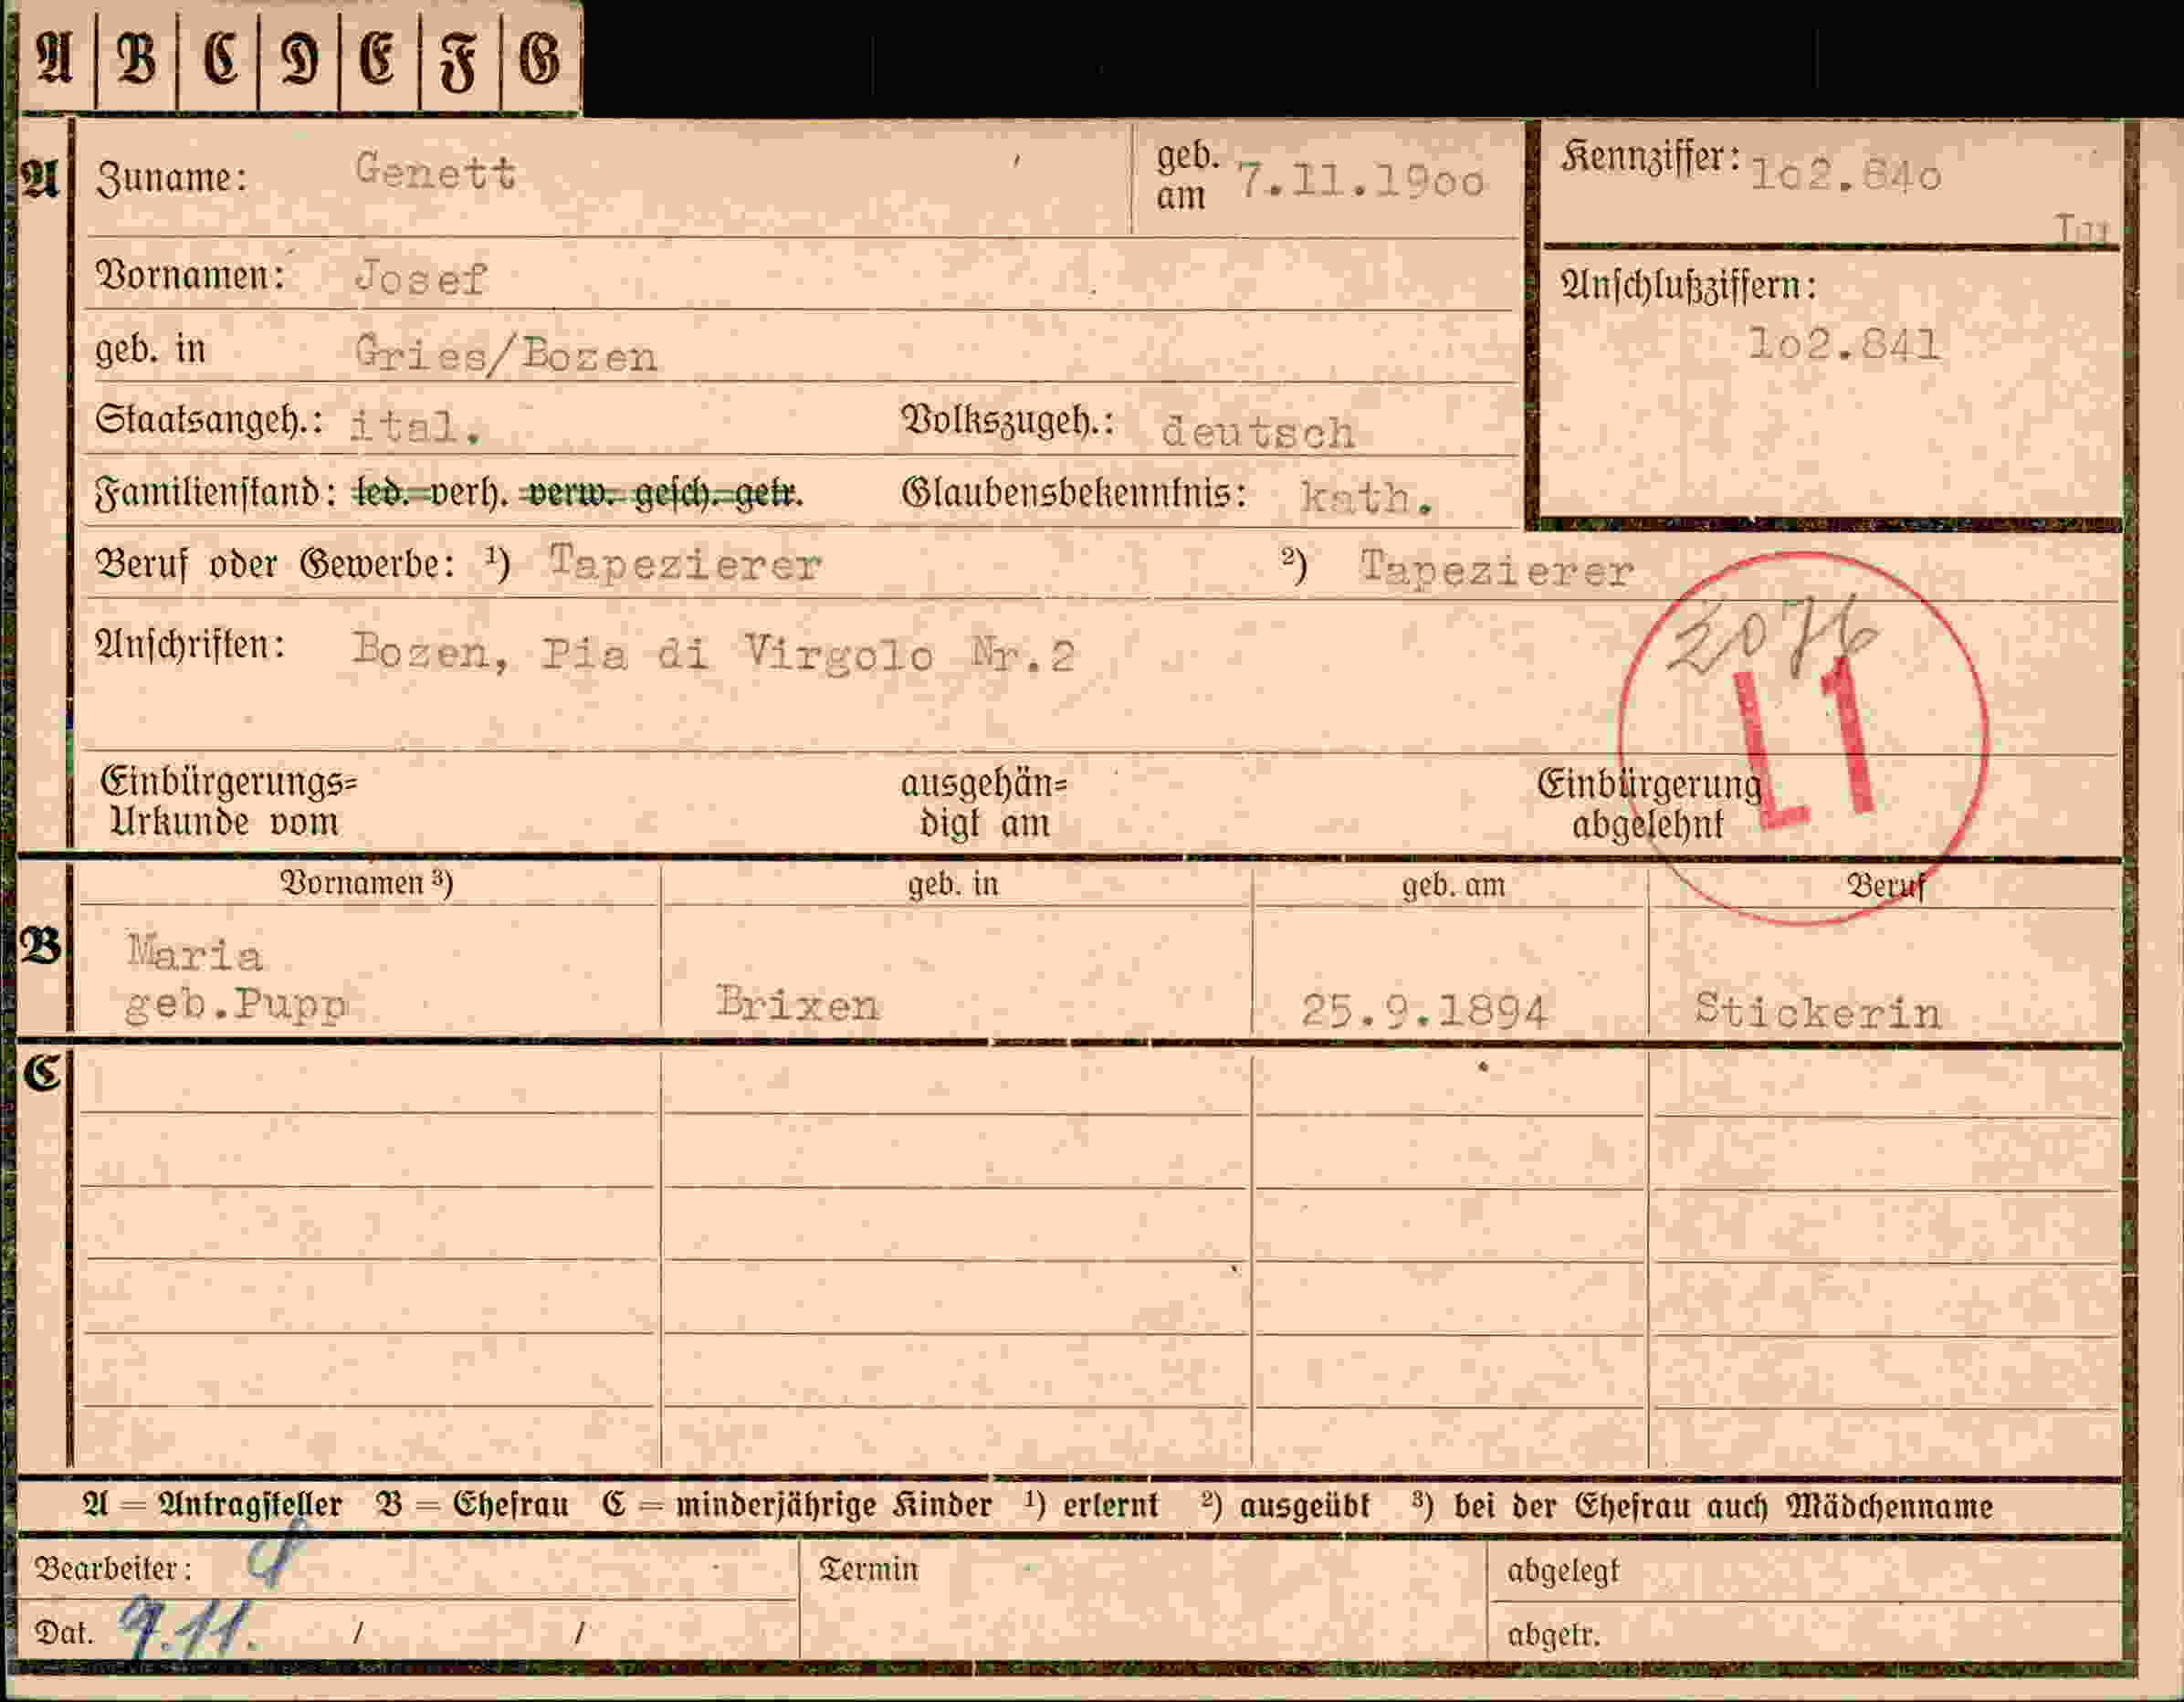 A B C D E F G
A Zuname: Genett geb. am 7.11.19oo Kennziffer: 1o2.84o
Vornamen: Josef Anschlußziffern:
geb. in Gries/Bozen 1o2.841
Staatsangeh.: ital. Volkszugeh.: deutsch
Familienstand: led. verh. verw. gesch. getr. Glaubensbekenntnis: kath.
Beruf oder Gewerbe: ¹) Tapezierer ²) Tapezierer
Anschriften: Bozen, Pia di Virgolo Nr.2
2076
L1
Einbürgerungs= ausgehän= Einbürgerung
Urkunde vom digt am abgelehnt
Vornamen ³) geb. in geb. am Beruf
B Maria
geb.Pupp Brixen 25.9.1894 Stickerin
C
A = Antragsteller B = Ehefrau C = minderjährige Kinder ¹) erlernt ²) ausgeübt ³) bei der Ehefrau auch Mädchenname
Bearbeiter: Termin abgelegt
Dat. 9.11. / / abgetr.